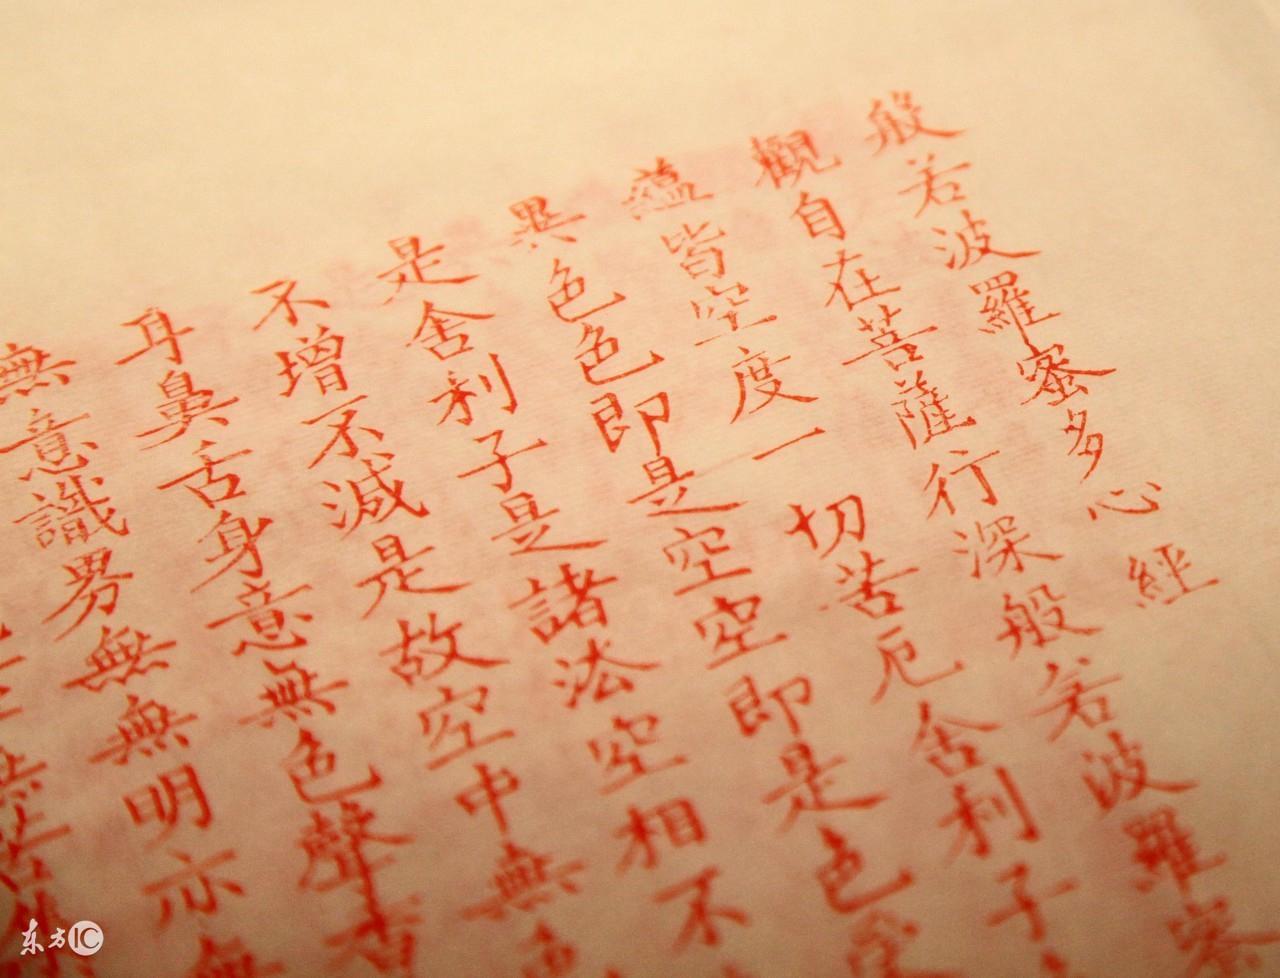 般若波羅蜜多心經
觀自在菩薩行深般若波羅蜜
蘊皆空度一切苦厄舍利子
異色色即是空空即是色受
是舍利子是諸法空相不
不增不減是故空中無色
耳鼻舌身意無色聲香
無意識界無無明亦無
东方IC